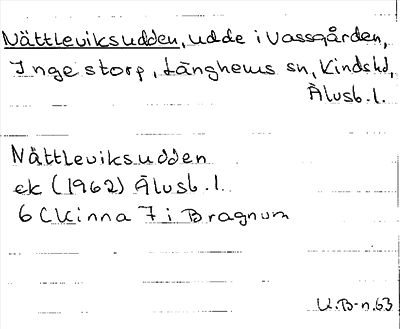 Nättleviksudden, udde i Vassgården,
Ingestorp, Länghems sn, Kinds hd,
Älvsb. l.
Nättleviksudden
ek (1962) Älvsb. l.
6 C Kinna 7 i Bragnum
U.B-n. 63